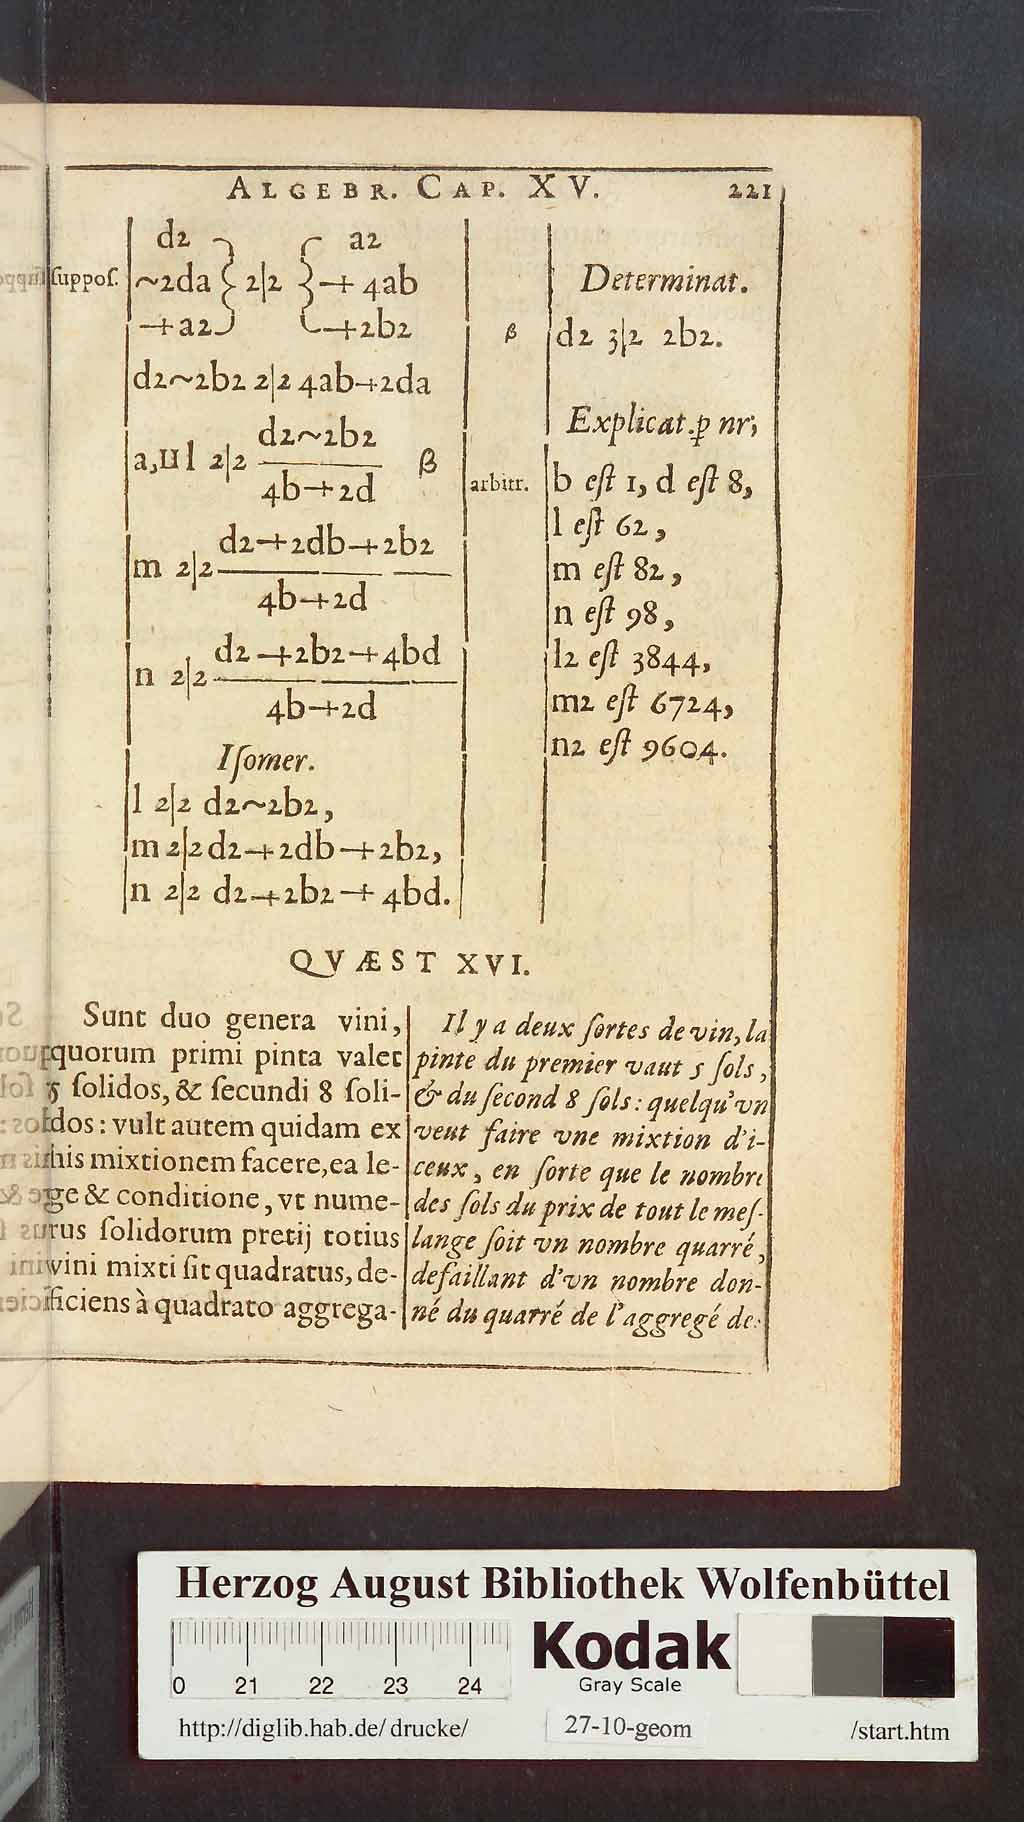 ALGEBR. CAP. XV. 221
d2 a2
suppos. ~2da 2|2 -+ 4ab
-+a2 -+2b2
d2~2b2 2|2 4ab-+2da
d2~2b2
a,III l 2|2 β
4b-+2d
d2-+2db-+2b2
m 2|2
4b-+2d
d2-+2b2-+4bd
n 2|2
4b-+2d
Isomer.
l 2|2 d2~2b2,
m 2|2 d2-+2db-+2b2,
n 2|2 d2-+2b2-+ 4bd.
Determinat.
β d2 3|2 2b2.
Explicat. ꝑ nr;
arbitr. b est 1, d est 8,
l est 62,
m est 82,
n est 98,
l2 est 3844,
m2 est 6724,
n2 est 9604.
QVÆST XVI.
Sunt duo genera vini,
quorum primi pinta valet
5 solidos, & secundi 8 soli-
dos: vult autem quidam ex
his mixtionem facere, ea le-
ge & conditione, vt nume-
rus solidorum pretij totius
vini mixti sit quadratus, de-
ficiens à quadrato aggrega-
Il y a deux sortes de vin, la
pinte du premier vaut 5 sols,
& du second 8 sols: quelqu'vn
veut faire vne mixtion d'i-
ceux, en sorte que le nombre
des sols du prix de tout le mes-
lange soit vn nombre quarré,
defaillant d'vn nombre don-
né du quarré de l'aggregé de
Herzog August Bibliothek Wolfenbüttel
0 21 22 23 24
Kodak
Gray Scale
http://diglib.hab.de/drucke/ 27-10-geom /start.htm